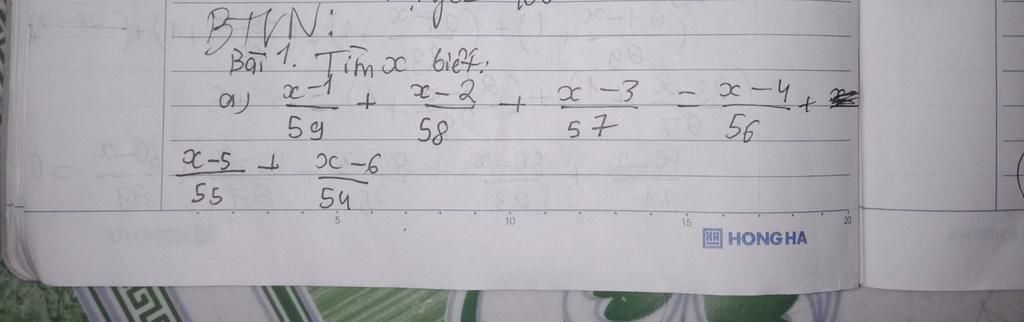 BTVN:
Bài 1. Tìm x biết:
a) x-1/59 + x-2/58 + x-3/57 = x-4/56 +
x-5/55 + x-6/54
5 10 15 20
HONG HA